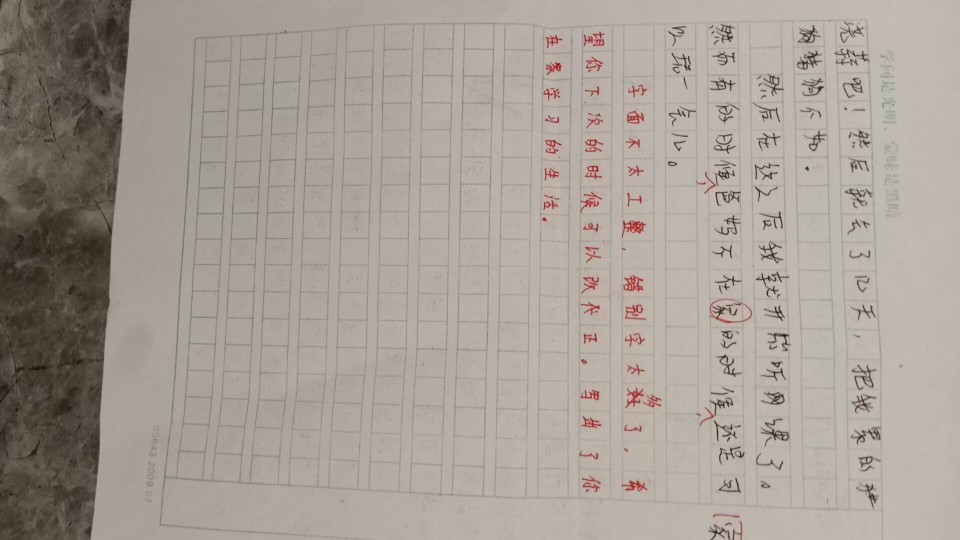 学问是光明，蒙昧是黑暗
吧！然后就去了几天，把我累的
狗不如。
然后在这之后我就开始听网课了。
然而有的时候爸妈不在家的时候还是可
家
以玩一会儿。
字面不太工整，错别字太多了，希
望你下次的时候可以改正。写出了你
在家学习的生活。
05643 2009.07